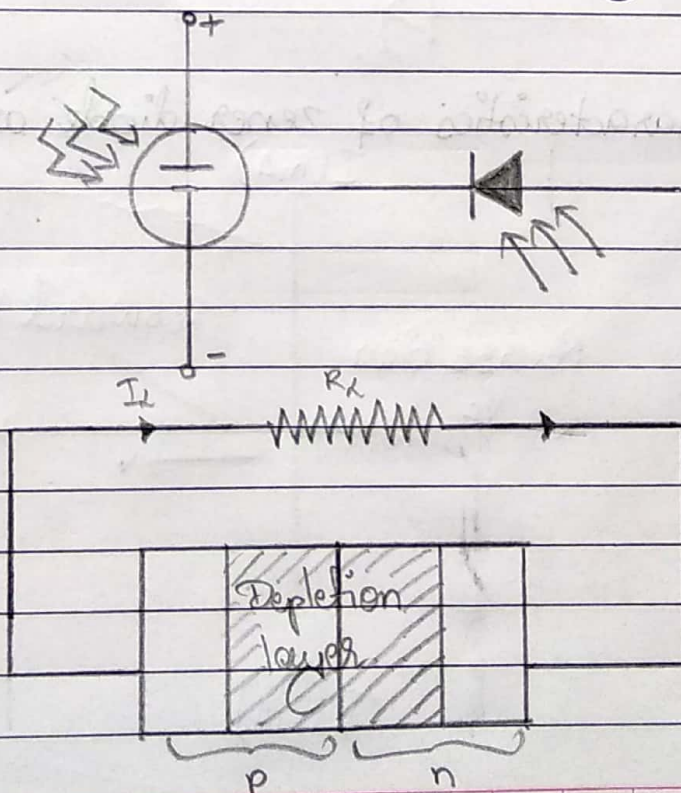 +
-
I_L R_L
Depletion
layer
p n